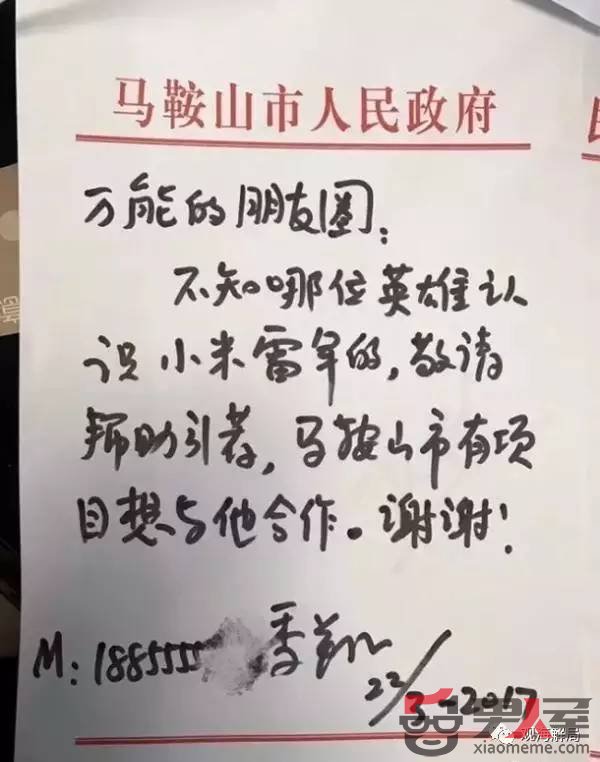 马鞍山市人民政府
万能的朋友圈:
不知哪位英雄认
识小米雷军的,敬请
帮助引荐,马鞍山市有项
目想与他合作。谢谢!
M:1885555
季翔
22/3-2017
观海解局
男人屋
xiaomeme.com